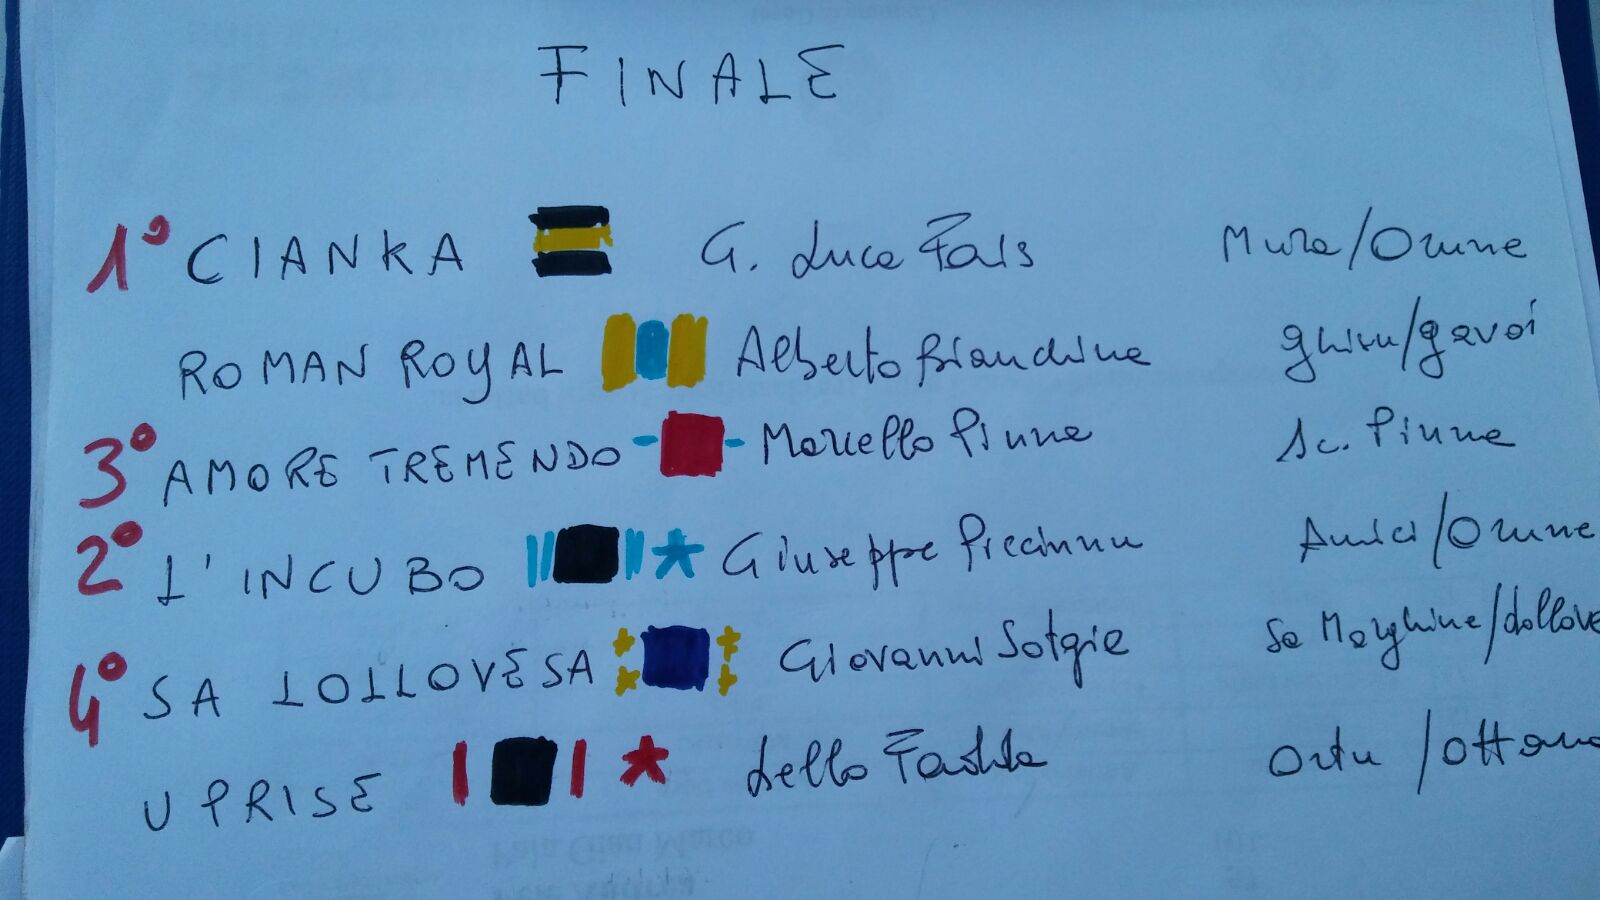 FINALE
1° CIANKA G. Luca Fais Mura/Orune
ROMAN ROYAL Alberto Bianchina Ghisu/Gavoi
3° AMORE TREMENDO Marcello Pinna Sc. Pinna
2° L'INCUBO Giuseppe Piccinnu Amici/Orune
4° SA LOLLOVESA Giovanni Sotgia Sa Marghine/Lollove
UPRISE Lello Ortu/Ottana